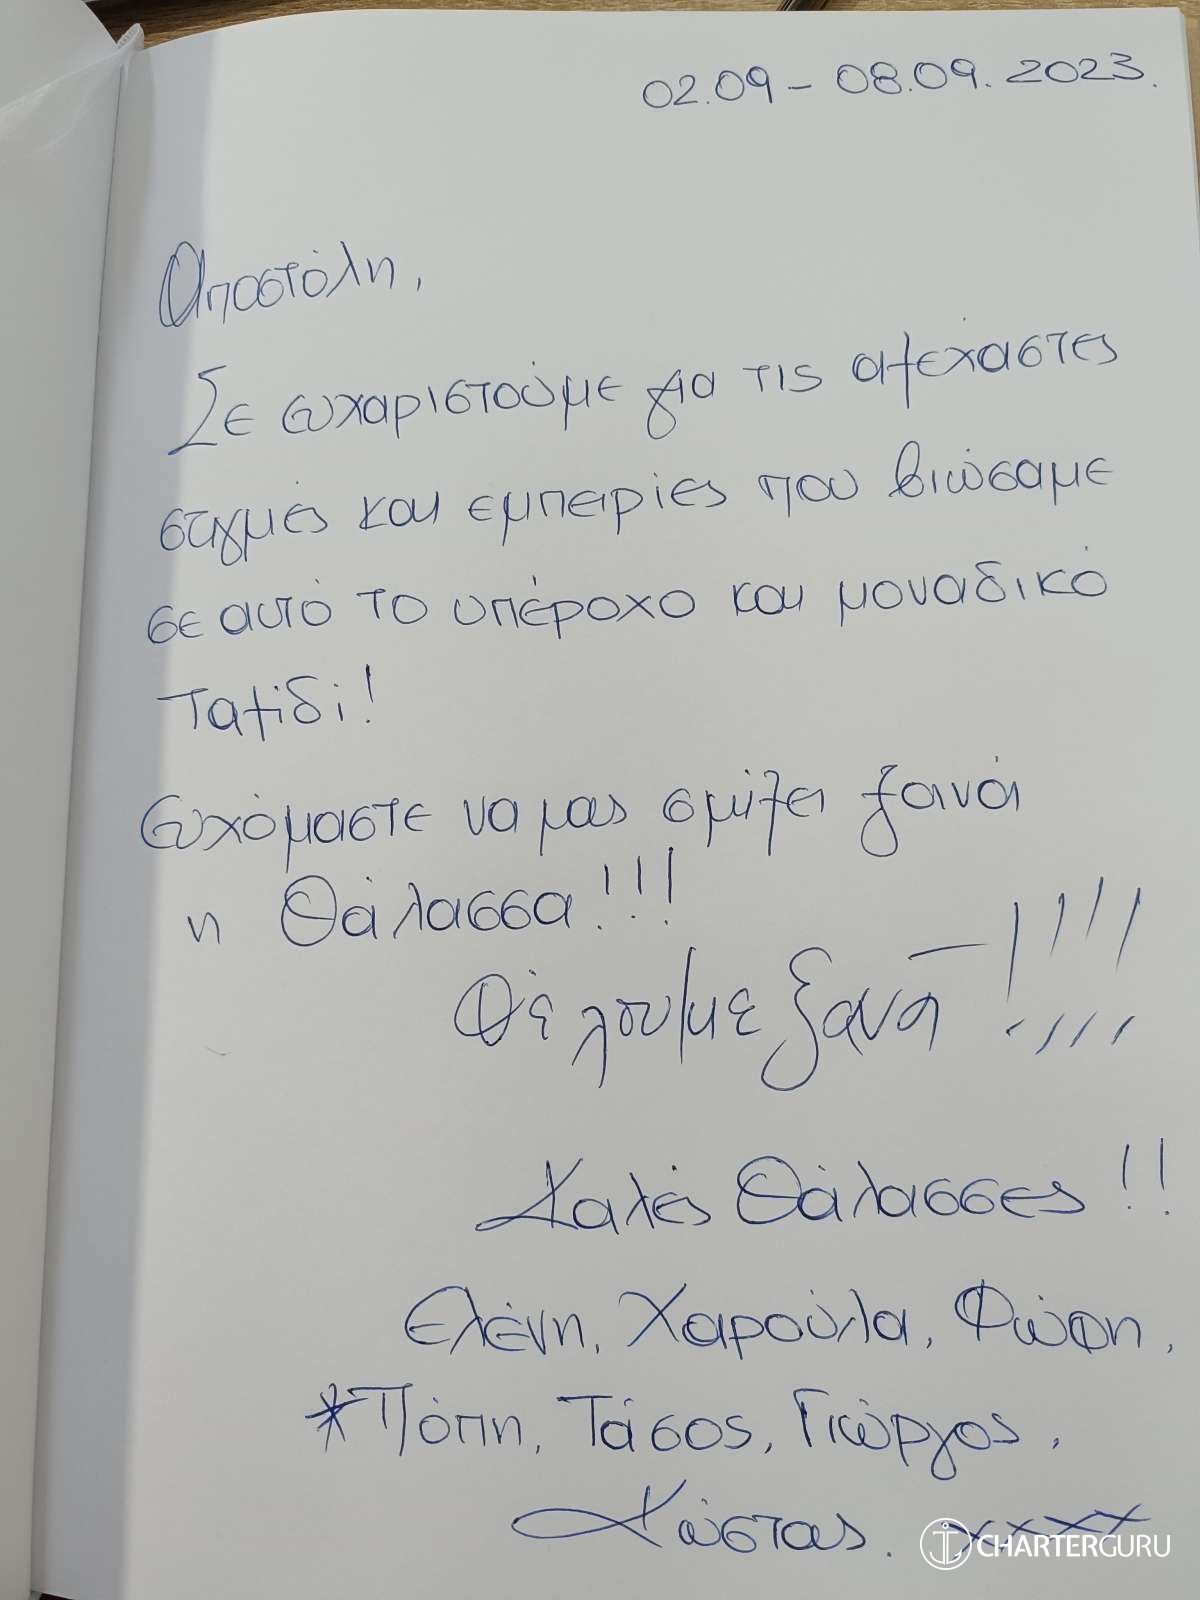 02.09 – 08.09. 2023.
Αποστόλη,
Σε ευχαριστούμε για τις αξέχαστες
στιγμές και εμπειρίες που βιώσαμε
σε αυτό το υπέροχο και μοναδικό
ταξίδι!
Ευχόμαστε να μας σμίξει ξανά
η Θάλασσα!!!
Θέλουμε ξανά!!!!
Καλές Θάλασσες!!
Ελένη, Χαρούλα, Φώφη,
*Πόπη, Τάσος, Γιώργος,
Κώστας. xxxx
CHARTERGURU